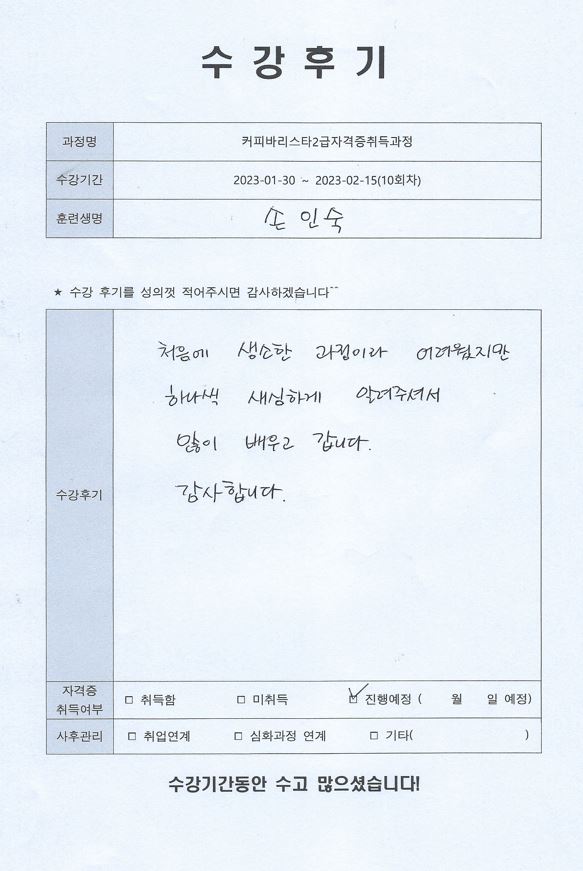 수강후기
과정명 커피바리스타2급자격증취득과정
수강기간 2023-01-30 ~ 2023-02-15(10회차)
훈련생명 손인숙
★ 수강 후기를 성의껏 적어주시면 감사하겠습니다^^
수강후기
처음에 생소한 과정이라 어려웠지만
하나씩 세심하게 알려주셔서
많이 배우고 갑니다.
감사합니다.
자격증
취득여부
□ 취득함 □ 미취득 ☑ 진행예정 ( 월 일 예정)
사후관리 □ 취업연계 □ 심화과정 연계 □ 기타( )
수강기간동안 수고 많으셨습니다!